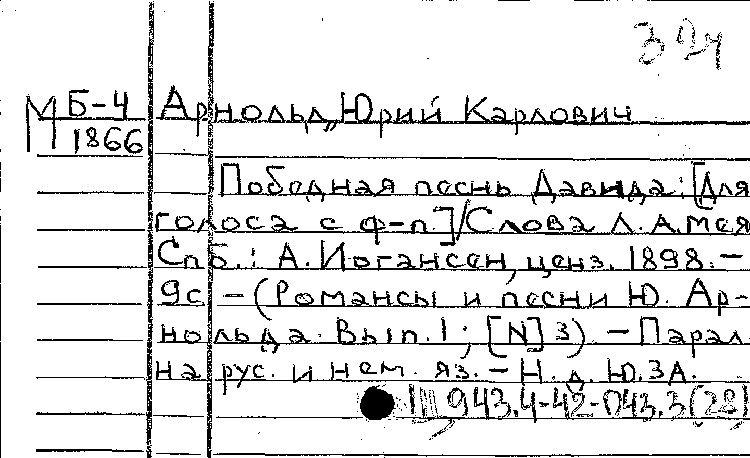 324
М Б-4 Арнольд, Юрий Карлович
1866
Победная песнь Давида: [Для
голоса с ф-п]/Слова Л. А. Мея
Спб.: А. Иогансен, ценз. 1898. –
9с – (Романсы и песни Ю. Ар-
нольда. Вып. 1; [N] 3). – Парал
на рус. и нем. яз. – Н. д. Ю.3А.
943.4-42-043.3(28)